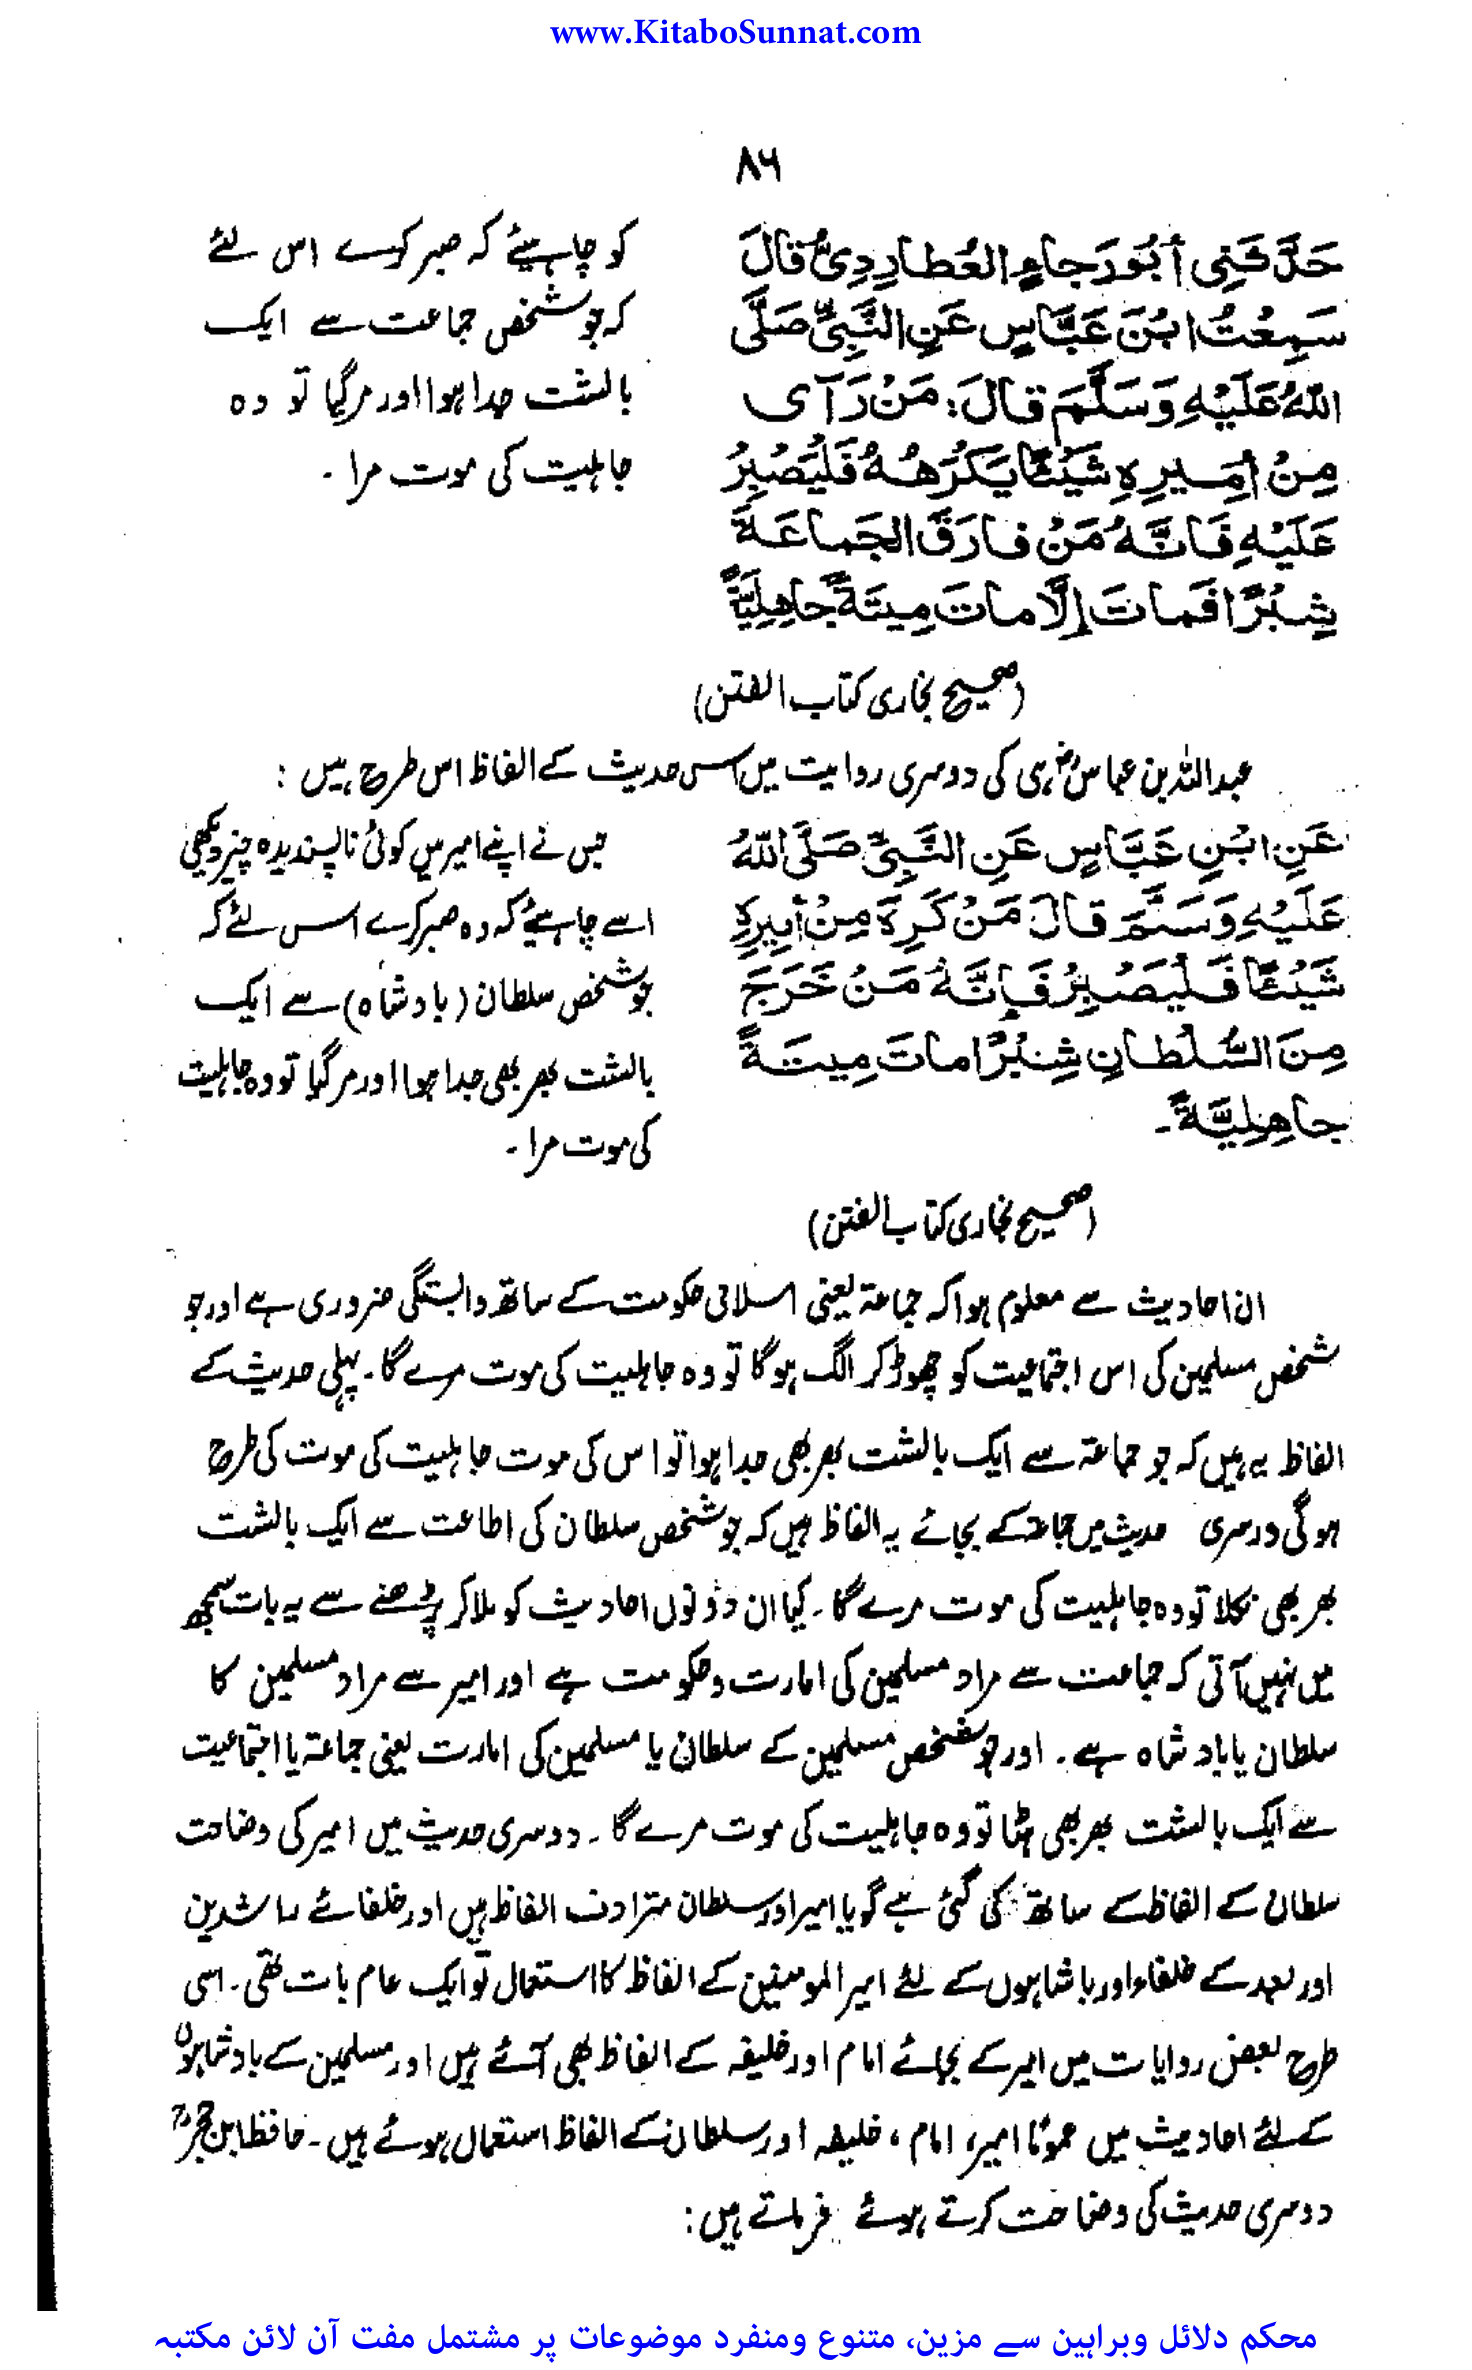 www.KitaboSunnat.com
۸۶
حَدَّثَنِی أَبُو رَجاءٍ العُطارِدِیُّ قَالَ
سَمِعْتُ ابْنَ عَبَّاسٍ عَنِ النَّبِیِّ صَلَّی
اللهُ عَلَیْهِ وَسَلَّمَ قالَ: مَنْ رَآی
مِنْ أَمِیرِهِ شَیْئًا یَکْرَهُهُ فَلْیَصْبِرْ
عَلَیْهِ فَاِنَّهُ مَنْ فارَقَ الجَماعَةَ
شِبْرًا فَماتَ إِلَّا ماتَ مِیتَةً جاهِلِیَّةً
کو چاہیئے کہ صبر کرے اس لئے
کہ جو شخص جماعت سے ایک
بالشت جدا ہوا اور مر گیا تو وہ
جاہلیت کی موت مرا ۔
(صحیح بخاری کتاب الفتن)
عبداللہ بن عباسؓ ہی کی دوسری روایت میں اس حدیث کے الفاظ اس طرح ہیں :
عَنِ ابْنِ عَبَّاسٍ عَنِ النَّبِیِّ صَلَّی اللهُ
عَلَیْهِ وَسَلَّمَ قالَ مَنْ کَرِهَ مِنْ أَمِیرِهِ
شَیْئًا فَلْیَصْبِرْ فَإِنَّهُ مَنْ خَرَجَ
مِنَ السُّلْطانِ شِبْرًا ماتَ مِیتَةً
جاهِلِیَّةً۔
جس نے اپنے امیر میں کوئی ناپسندیدہ چیز دیکھی
اسے چاہیئے کہ وہ صبر کرے اس لئے کہ
جو شخص سلطان (بادشاہ) سے ایک
بالشت بھر بھی جدا ہوا اور مر گیا تو وہ جاہلیت
کی موت مرا ۔
(صحیح بخاری کتاب الفتن)
ان احادیث سے معلوم ہوا کہ جماعۃ یعنی اسلامی حکومت کے ساتھ وابستگی ضروری ہے اور جو
شخص مسلمین کی اس اجتماعیت کو چھوڑ کر الگ ہوگا تو وہ جاہلیت کی موت مرے گا۔ پہلی حدیث کے
الفاظ یہ ہیں کہ جو جماعۃ سے ایک بالشت بھر بھی جدا ہوا تو اس کی موت جاہلیت کی موت کی طرح
ہوگی دوسری حدیث میں جماعۃ کے بجائے یہ الفاظ ہیں کہ جو شخص سلطان کی اطاعت سے ایک بالشت
بھر بھی نکلا تو وہ جاہلیت کی موت مرے گا۔ کیا ان دونوں احادیث کو ملا کر پڑھنے سے یہ بات سمجھ
میں نہیں آتی کہ جماعت سے مراد مسلمین کی امارت و حکومت ہے اور امیر سے مراد مسلمین کا
سلطان یا بادشاہ ہے۔ اور جو شخص مسلمین کے سلطان یا مسلمین کی امارت یعنی جماعۃ یا اجتماعیت
سے ایک بالشت بھر بھی ہٹا تو وہ جاہلیت کی موت مرے گا۔ دوسری حدیث میں امیر کی وضاحت
سلطان کے الفاظ کے ساتھ کی گئی ہے گویا امیر اور سلطان مترادف الفاظ ہیں اور خلفائے راشدین
اور بعد کے خلفاء اور باشاہوں کے لئے امیر المومنین کے الفاظ کا استعمال تو ایک عام بات تھی۔ اسی
طرح بعض روایات میں امیر کے بجائے امام اور خلیفہ کے الفاظ بھی آئے ہیں اور مسلمین کے بادشاہوں
کے لئے احادیث میں عموماً امیر، امام، خلیفہ اور سلطان کے الفاظ استعمال ہوئے ہیں۔ حافظ ابن حجرؒ
دوسری حدیث کی وضاحت کرتے ہوئے فرماتے ہیں:
محکم دلائل وبراہین سے مزین، متنوع ومنفرد موضوعات پر مشتمل مفت آن لائن مکتبہ